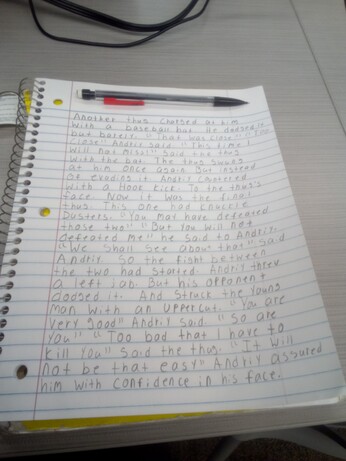 Another thug charged at him
with a baseball bat. He dodged it
but barely. "That was close" "Too
close" Andriy said. "This time I
will not miss" said the thug
with the bat. The thug swung
at him once again. But instead
of evading it Andriy countered
with a Hook Kick To the thug's
face. Now it was the final
thug. This one had Knuckle
Dusters. "You may have defeated
those two" "But you will not
defeated me" he said to Andriy.
"We shall see about that" said
Andriy. So the fight between
the two had started. Andriy threw
a left jab. But his opponent
dodged it. And Struck the young
man with an uppercut. "You are
very good" Andriy said. "So are
you" "Too bad that I have to
Kill you" said the thug. "It will
not be that easy" Andriy assured
him with confidence in his face.